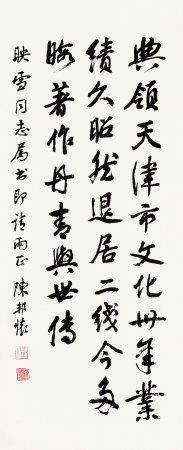 典領天津市文化卅年業
績久昭然退居二线今多
暇著作丹青與世傳
映雪同志属书即请兩正 陳邦懷